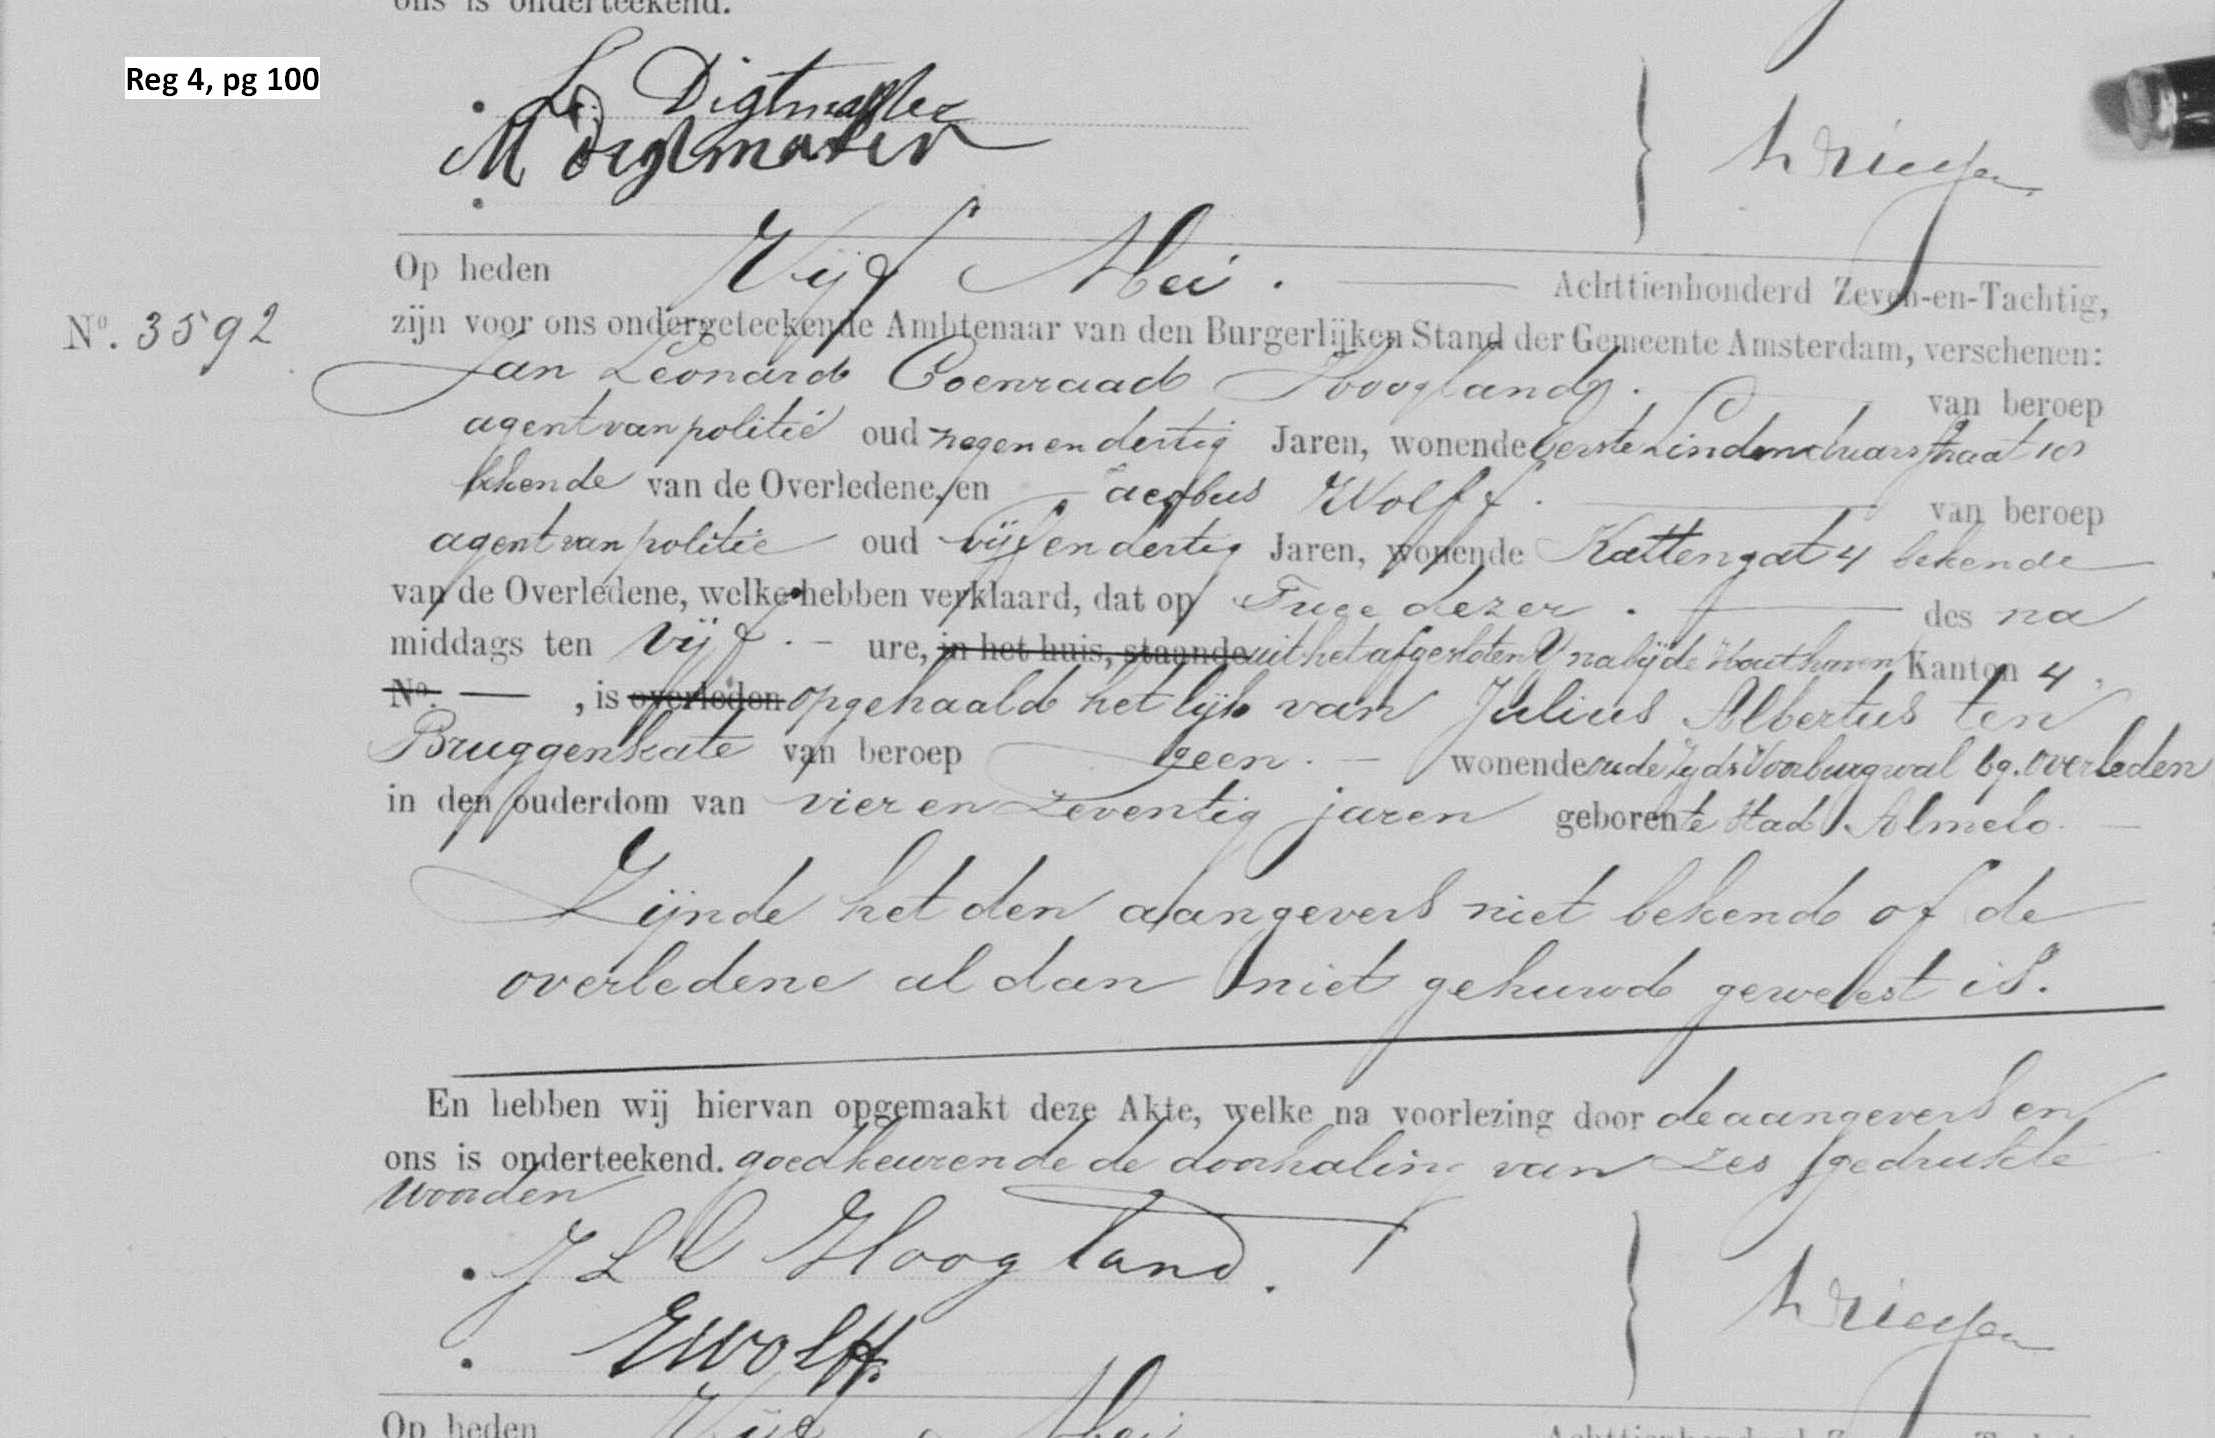 ons is onderteekend.
Reg 4, pg 100
M Digtmater
Op heden Vijf Mei. Achttienhonderd Zeven-en-Tachtig,
No. 3592
zijn voor ons ondergeteekende Ambtenaar van den Burgerlijken Stand der Gemeente Amsterdam, verschenen:
Jan Leonard Coenraad Hoogland. van beroep
agent van politie oud negenendertig Jaren, wonende Eerste Lindendwarsstraat 10
bekende van de Overledene, en Jacobus Wolff. van beroep
agent van politie oud vijfendertig Jaren, wonende Kattengat 4 bekende
van de Overledene, welke hebben verklaard, dat op Twee dezer. des na
middags ten vijf. ure, in het huis, staande uit het afgesloten Y nabij de Houthaven Kanton 4,
No. , is overleden opgehaald het lijk van Julius Albertus ten
Bruggenkate van beroep geen. wonende oude Zyds Voorburgwal 69. overleden
in den ouderdom van vier en zeventig jaren geboren te Stad Almelo.
Zijnde het den aangevers niet bekend of de
overledene al dan niet gehuwd geweest is.
En hebben wij hiervan opgemaakt deze Akte, welke na voorlezing door de aangevers en
ons is onderteekend. goedkeurende de doorhaling van zes gedrukte
woorden
J L C Hoogland.
Wolff
Op heden Vijf Mei Achttienhonderd